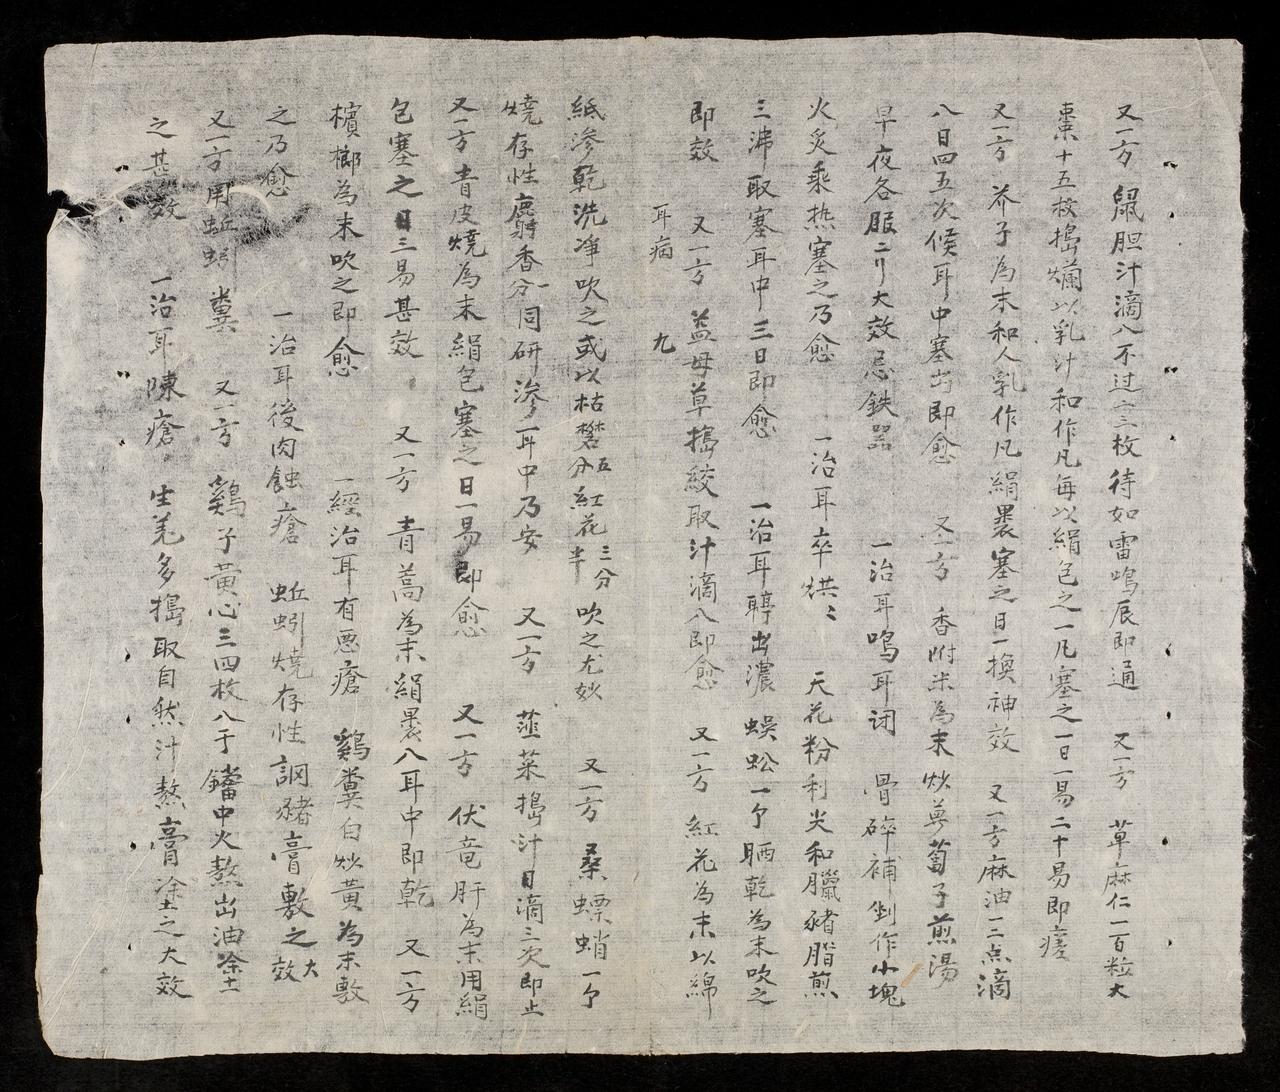 又一方 鼠胆汁滴入不过二三枚待如雷鳴辰即通 又一方 草麻仁一百粒大
棗十五枚搗爛以乳汁和作凡每以絹包之一凡塞之一日一易二十易即瘥
又一方 芥子為末和人乳作凡絹裹塞之日一換神效 又一方麻油二三点滴
入日四五次候耳中塞出即愈 又一方 香附米為末炒蔔子煎湯
早夜各服二刀大效忌鉄器 一治耳鳴耳闭 骨碎補剉作小塊
火炙乘热塞之乃愈 一治耳卒烘〻 天花粉利尖和臘豬脂煎
三沸取塞耳中三日即愈 一治耳聤出濃 蜈蚣一个晒乾為末吹之
即效 又一方 益母草搗絞取汁滴入即愈 又一方 紅花為末以綿
耳病 九
紙滲乾洗淨吹之或以枯礬五分紅花三分半 吹之尤妙 又一方 桑螵蛸一个
燒存性麝香一分同研滲耳中乃安 又一方 韮菜搗汁日滴三次即止
又一方 青皮燒為末絹包塞之日一易即愈 又一方 伏竜肝為末用絹
包塞之日三易甚效 又一方 青蒿為末絹裹入耳中即乾 又一方
檳榔為末吹之即愈 一經治耳有悪瘡 鷄糞白炒黃為末敷
之乃愈 一治耳後肉蝕瘡 蚯蚓燒存性調豬膏敷之大效
又一方用蚯蚓糞 又一方 鷄子黃心三四枚入于鐺中火熬出油塗
之甚效 一治耳陳瘡 生羌多搗取自然汁熬膏塗之大效